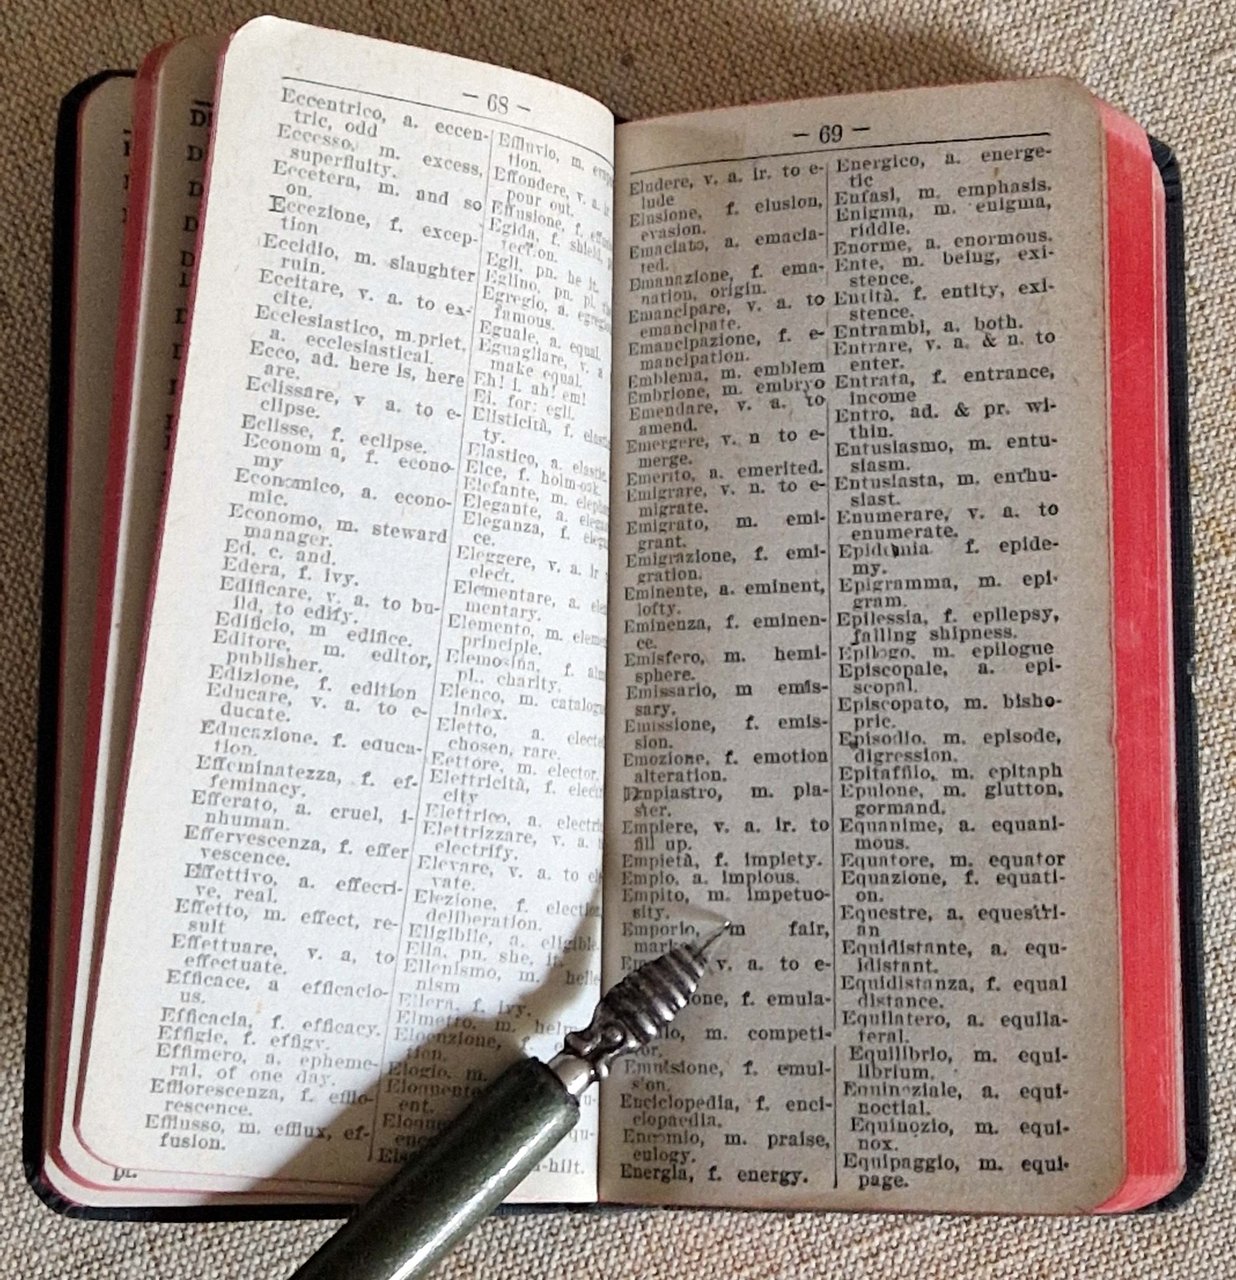 — 68 —
Eccentrico, a. eccen-
tric, odd
Eccesso, m. excess,
superfluity.
Eccetera, m. and so
on.
Eccezione, f. excep-
tion
Eccidio, m. slaughter
ruin.
Eccitare, v. a. to ex-
cite.
Ecclesiastico, m.priet,
a. ecclesiastical.
Ecco, ad. here is, here
are.
Eclissare, v a. to e-
clipse.
Eclisse, f. eclipse.
Econom a, f. econo-
my
Economico, a. econo-
mic.
Economo, m. steward
manager.
Ed, c. and.
Edera, f. ivy.
Edificare, v. a. to bu-
ild, to edify.
Edificio, m edifice.
Editore, m. editor,
publisher.
Edizione, f. edition
Educare, v. a. to e-
ducate.
Educazione, f. educa-
tion.
Effeminatezza, f. ef-
feminacy.
Efferato, a. cruel, i-
nhuman.
Effervescenza, f. effer
vescence.
Effettivo, a. effecri-
ve, real.
Effetto, m. effect, re-
suit
Effettuare, v. a, to
effectuate.
Efficace, a efficacio-
us.
Efficacia, f. efficacy.
Effigie, f. effigy.
Effimero, a. epheme-
ral. of one day.
Efflorescenza, f. efflo-
rescence.
Efflusso, m. efflux, ef-
fusion.
Effluvio, m.
tion.
Effondere, v. a.
pour out.
Effusione, f.
Egida, f. shield,
tect.on.
Egli, pn. he it.
Eglino, pn. pl.
Egregio, a.
famous.
Eguale, a. equal.
Eguagliare, v. a
make equal.
Eh! i. ah! em!
Ei, for; egli.
Elisticità, f.
ty.
Elastico, a. elastic.
Elce, f. holm-oak.
Elefante, m.
Elegante, a.
Eleganza, f.
ce.
Eleggere, v. a. ir
elect.
Elementare, a.
mentary.
Elemento, m.
principle.
Elemosina, f.
pl.. charity.
Elenco, m.
index.
Eletto, a.
chosen, rare.
Eettore, m. elector.
Elettricità, f.
city
Elettrico, a.
Elettrizzare, v. a.
electrify.
Elevare, v. a. to
vate.
Elezione, f.
deliberation.
Eligibile, a. eligible.
Ella, pn. she, it.
Ellenismo, m.
nism
Ellera, f. ivy.
Elmetto, m.
Elocuzione, f.
tion.
Elogio, m.
ent.
-hilt.
— 69 —
Eludere, v. a. ir. to e-
lude
Elusione, f. elusion,
evasion.
Emaciato, a. emacia-
ted.
Emanazione, f. ema-
nation, origin.
Emancipare, v. a. to
emancipate.
Emancipazione, f. e-
mancipation.
Emblema, m. emblem
Embrione, m. embryo
Emendare, v. a. to
amend.
Emergere, v. n to e-
merge.
Emerito, a. emerited.
Emigrare, v. n. to e-
migrate.
Emigrato, m. emi-
grant.
Emigrazione, f. emi-
gration.
Eminente, a. eminent,
lofty.
Eminenza, f. eminen-
ce.
Emisfero, m. hemi-
sphere.
Emissario, m emis-
sary.
Emissione, f. emis-
sion.
Emozione, f. emotion
alteration.
Empiastro, m. pla-
ster.
Empiere, v. a. ir. to
fill up.
Empietà, f. impiety.
Empio, a. impious.
Empito, m. impetuo-
sity.
Emporio, m fair,
v. a. to e-
f. emula-
m. competi-
Emulsione, f. emul-
s'on.
Enciclopedia, f. enci-
clopaedia.
Encomio, m. praise,
eulogy.
Energia, f. energy.
Energico, a. energe-
tic
Enfasi, m. emphasis.
Enigma, m. enigma,
riddle.
Enorme, a. enormous.
Ente, m. being, exi-
stence.
Entità, f. entity, exi-
stence.
Entrambi, a. both.
Entrare, v. a. & n. to
enter.
Entrata, f. entrance,
income
Entro, ad. & pr. wi-
thin.
Entusiasmo, m. entu-
siasm.
Entusiasta, m. enthu-
siast.
Enumerare, v. a. to
enumerate.
Epidemia f. epide-
my.
Epigramma, m. epi-
gram.
Epilessia, f. epilepsy,
falling shipness.
Epilogo, m. epilogue
Episcopale, a. epi-
scopal.
Episcopato, m. bisho-
pric.
Episodio, m. episode,
digression.
Epitaffio, m. epitaph
Epulone, m. glutton,
gormand.
Equanime, a. equani-
mous.
Equatore, m. equator
Equazione, f. equati-
on.
Equestre, a. equestri-
an
Equidistante, a. equ-
idistant.
Equidistanza, f. equal
distance.
Equilatero, a. equila-
teral.
Equilibrio, m. equi-
librium.
Equinoziale, a. equi-
noctial.
Equinozio, m. equi-
nox.
Equipaggio, m. equi-
page.